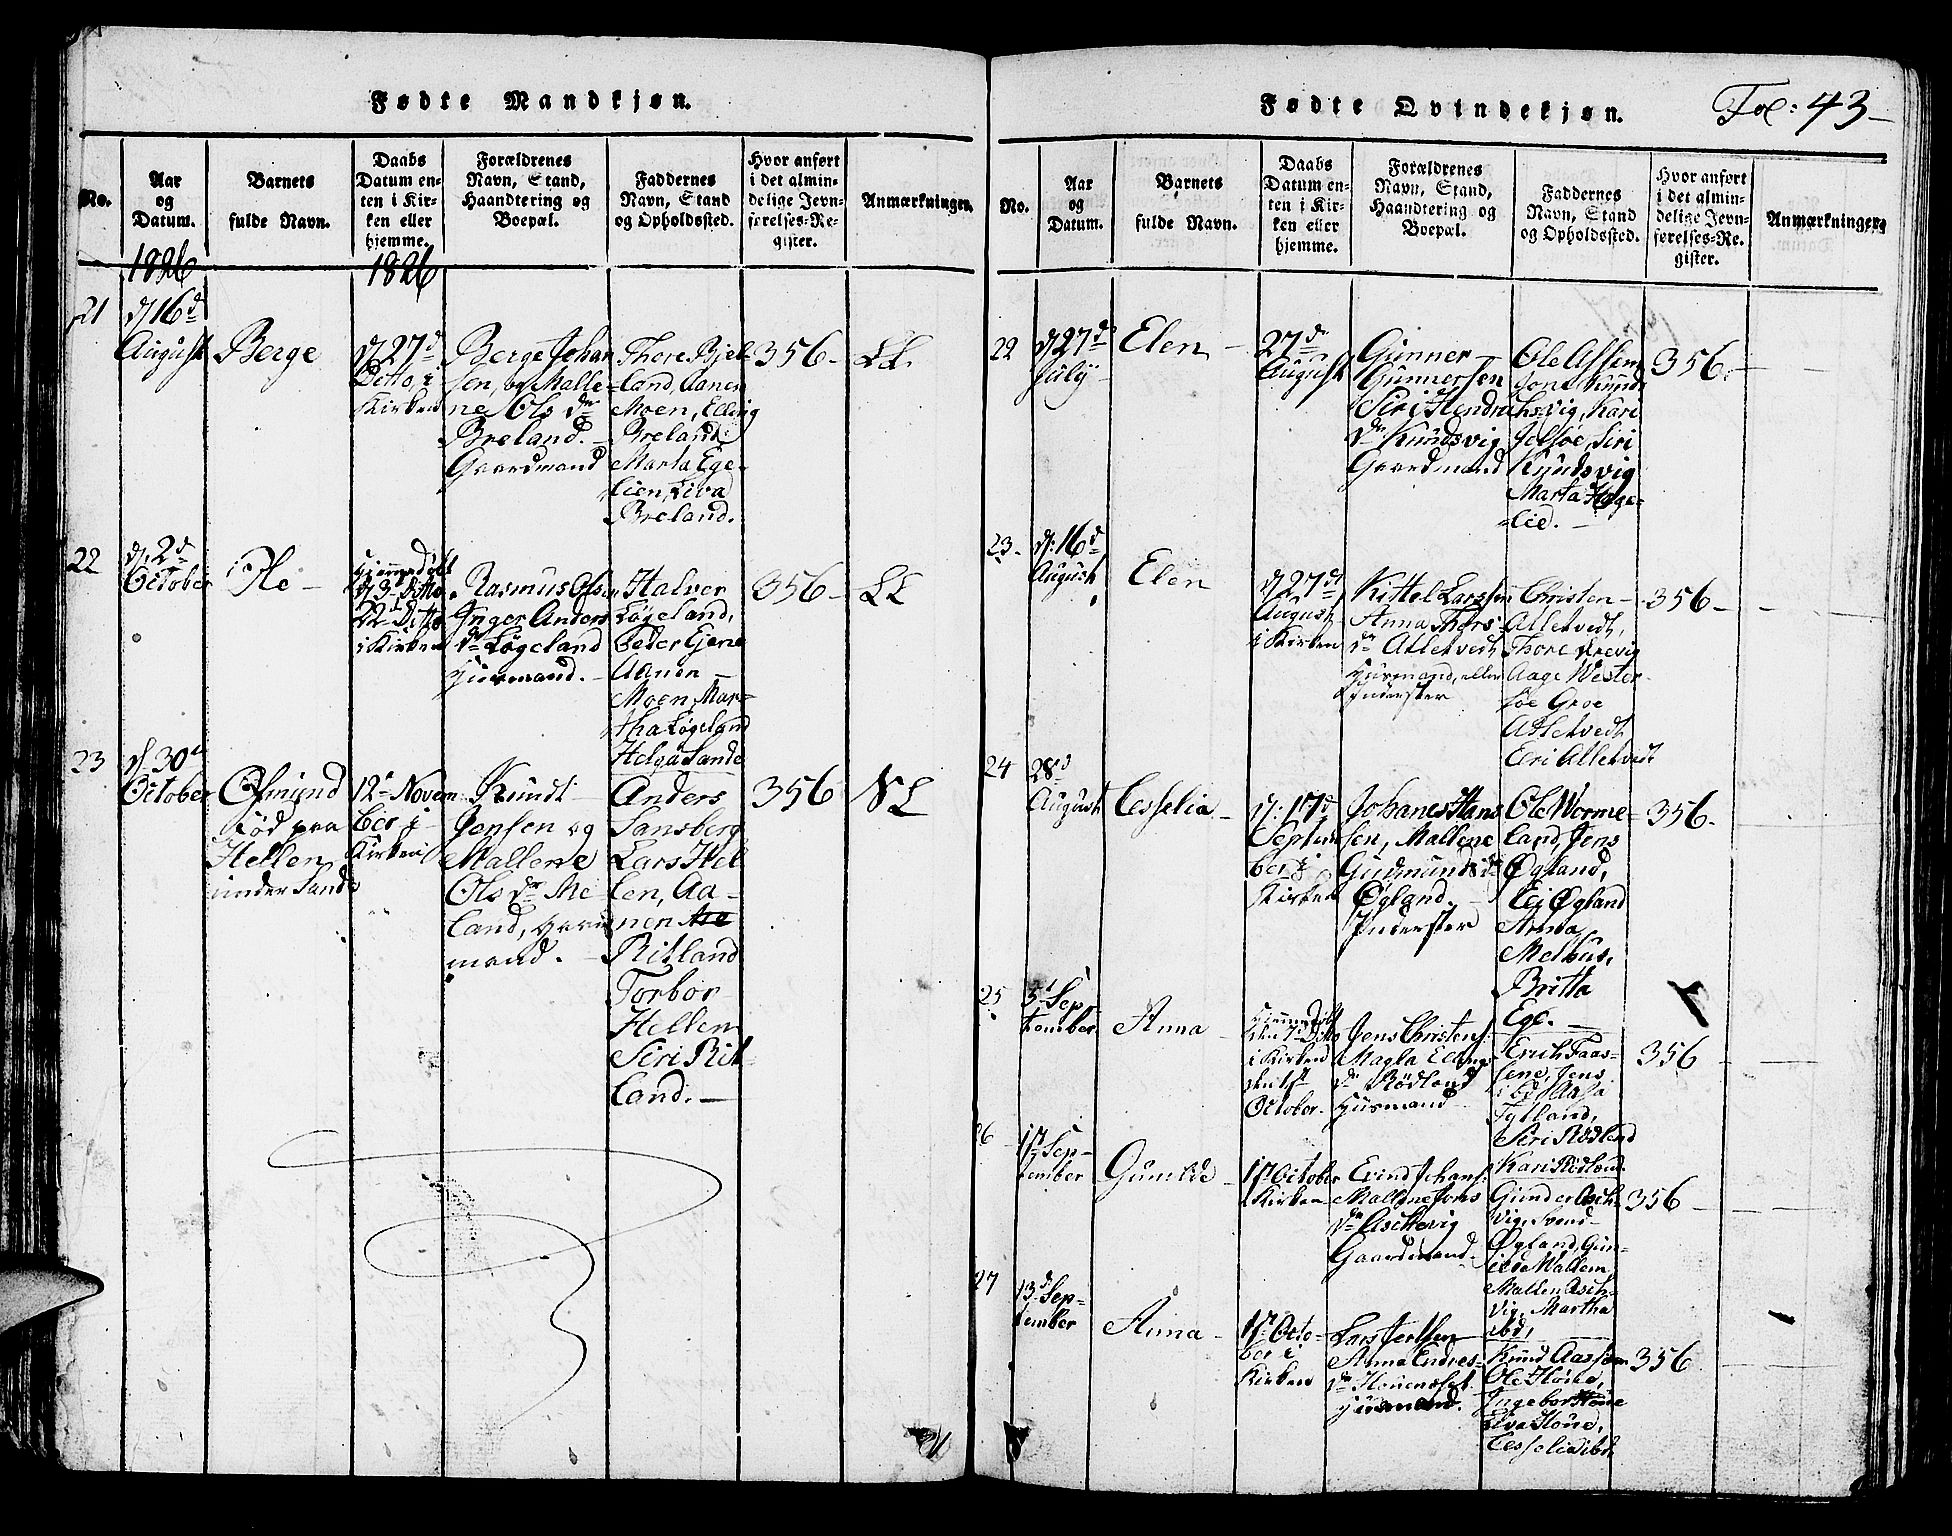 Fødte Mandkjøn.
No.
Aar
og
Datum.
Barnets
fulde Navn.
Daabs
Datum en-
ten i Kir-
ken eller
hjemme.
Forældrenes
Navn, Stand,
Haandtering og
Boepæl.
Faddernes
Navn, Stand
og Opholdssted.
Hvor anført
i det almin-
delige Jevn-
førelses-Re-
gister.
Anmærkninger.
1826
1826
21
d. 16d
August
Berge
d. 27d
Ditto, i
Kirken
Berge Johan
sen, og Malle-
ne Ols dr
Breland.
Gaardmand
Thore Bjel-
land, Aanen
Moen, Elling
Breland,
Marta Ege-
lien, Liva
Breland.
356
LL.
22
d. 2d
October
Ole
Hjemmedøbt
d 3 Ditto
22 Ditto
i Kirken
Rasmus Olsen
Inger Anders
dr Løgeland
Huusmand.
Halvor
Løgeland,
Peder Ejene
Aanen
Moen, Mar-
tha Løgeland
Helga Sande
356
LL
23
d. 30d
October
Osmund
fød paa
Hellen
under Sande
12d Novem
ber i
Kirken
Knudt
Jensen og
Mallene
Ols dr Me-
land, Huus
mand.
Anders
Sansberg
Lars Hel
len, Aa-
nen
Ritland
Torbor
Hellen
Siri Rit-
land.
356
NL
Fødte Qvindekjøn.
Fol: 43
No.
Aar
og
Datum.
Barnets
fulde Navn.
Daabs
Datum en-
ten i Kir-
ken eller
hjemme.
Forældrenes
Navn, Stand,
Haandtering og
Boepæl.
Faddernes
Navn, Stand
og Opholdssted.
Hvor anført
i det almin-
delige Jevn-
førelses-Re-
gister.
Anmærkninger
22
d. 27d
July
Elen
27d
August
Gunner
Gunnersen
Siri Hendri
dr Knudsvig
Gaardmand
Ole Assem
Jone Knud
hsvig, Kari
Jelsøe, Siri
Knudsvig
Marta Hege-
lie.
356.
23.
d: 16d
August
Elen
d 27d
August
i Kirken
Kittel Larssen
Anna Thors
dr Atletvedt
Huusmand, eller
Inderster
Christen
Alletvedt,
Thore Krevig
Aage Wester-
søe Groe
Atletvedt
Eri Alletvedt
356
24
28d
August
Cesselia
d: 17d
Septem
ber i
Kirken
Johanes Hans
sen, Mallene
Gudmunds dr
Øgland.
Inderster
Ole Worme-
land, Jens
Øgland,
Eej Øgland
Anna
Melhus,
Britta
Ege.
356.
25
5d Sep-
tember
Anna
Hjemmedøbt
den 7d Ditto
i Kirken
den 1st
October.
Jens Christens:
Magla Ellings
dr Rødland
Huusmand
Erich Faas-
sene, Jens
ibd Aasa
Tytland,
Siri Rødland
Kari Ridland
356
26
1st Sep-
tember
Gunilde
1st October
i Kirken
Evind Johans:
Mallene Jons
dr Aschevig
Gaardmand.
Gunder Asch-
vig, Svend
Øgland, Gun-
ilda Mallem
Mallen Asch-
vig, Martha
ibd,
356
27
13d Sep-
tember
Anna
1st Octo-
ber i
Kirken
Lars
Anna Endres-
dr
Huusmand.
Knud Aassen
Ole Høile,
Ingebor Høne
Liva Høne,
Cesselia ibd
356